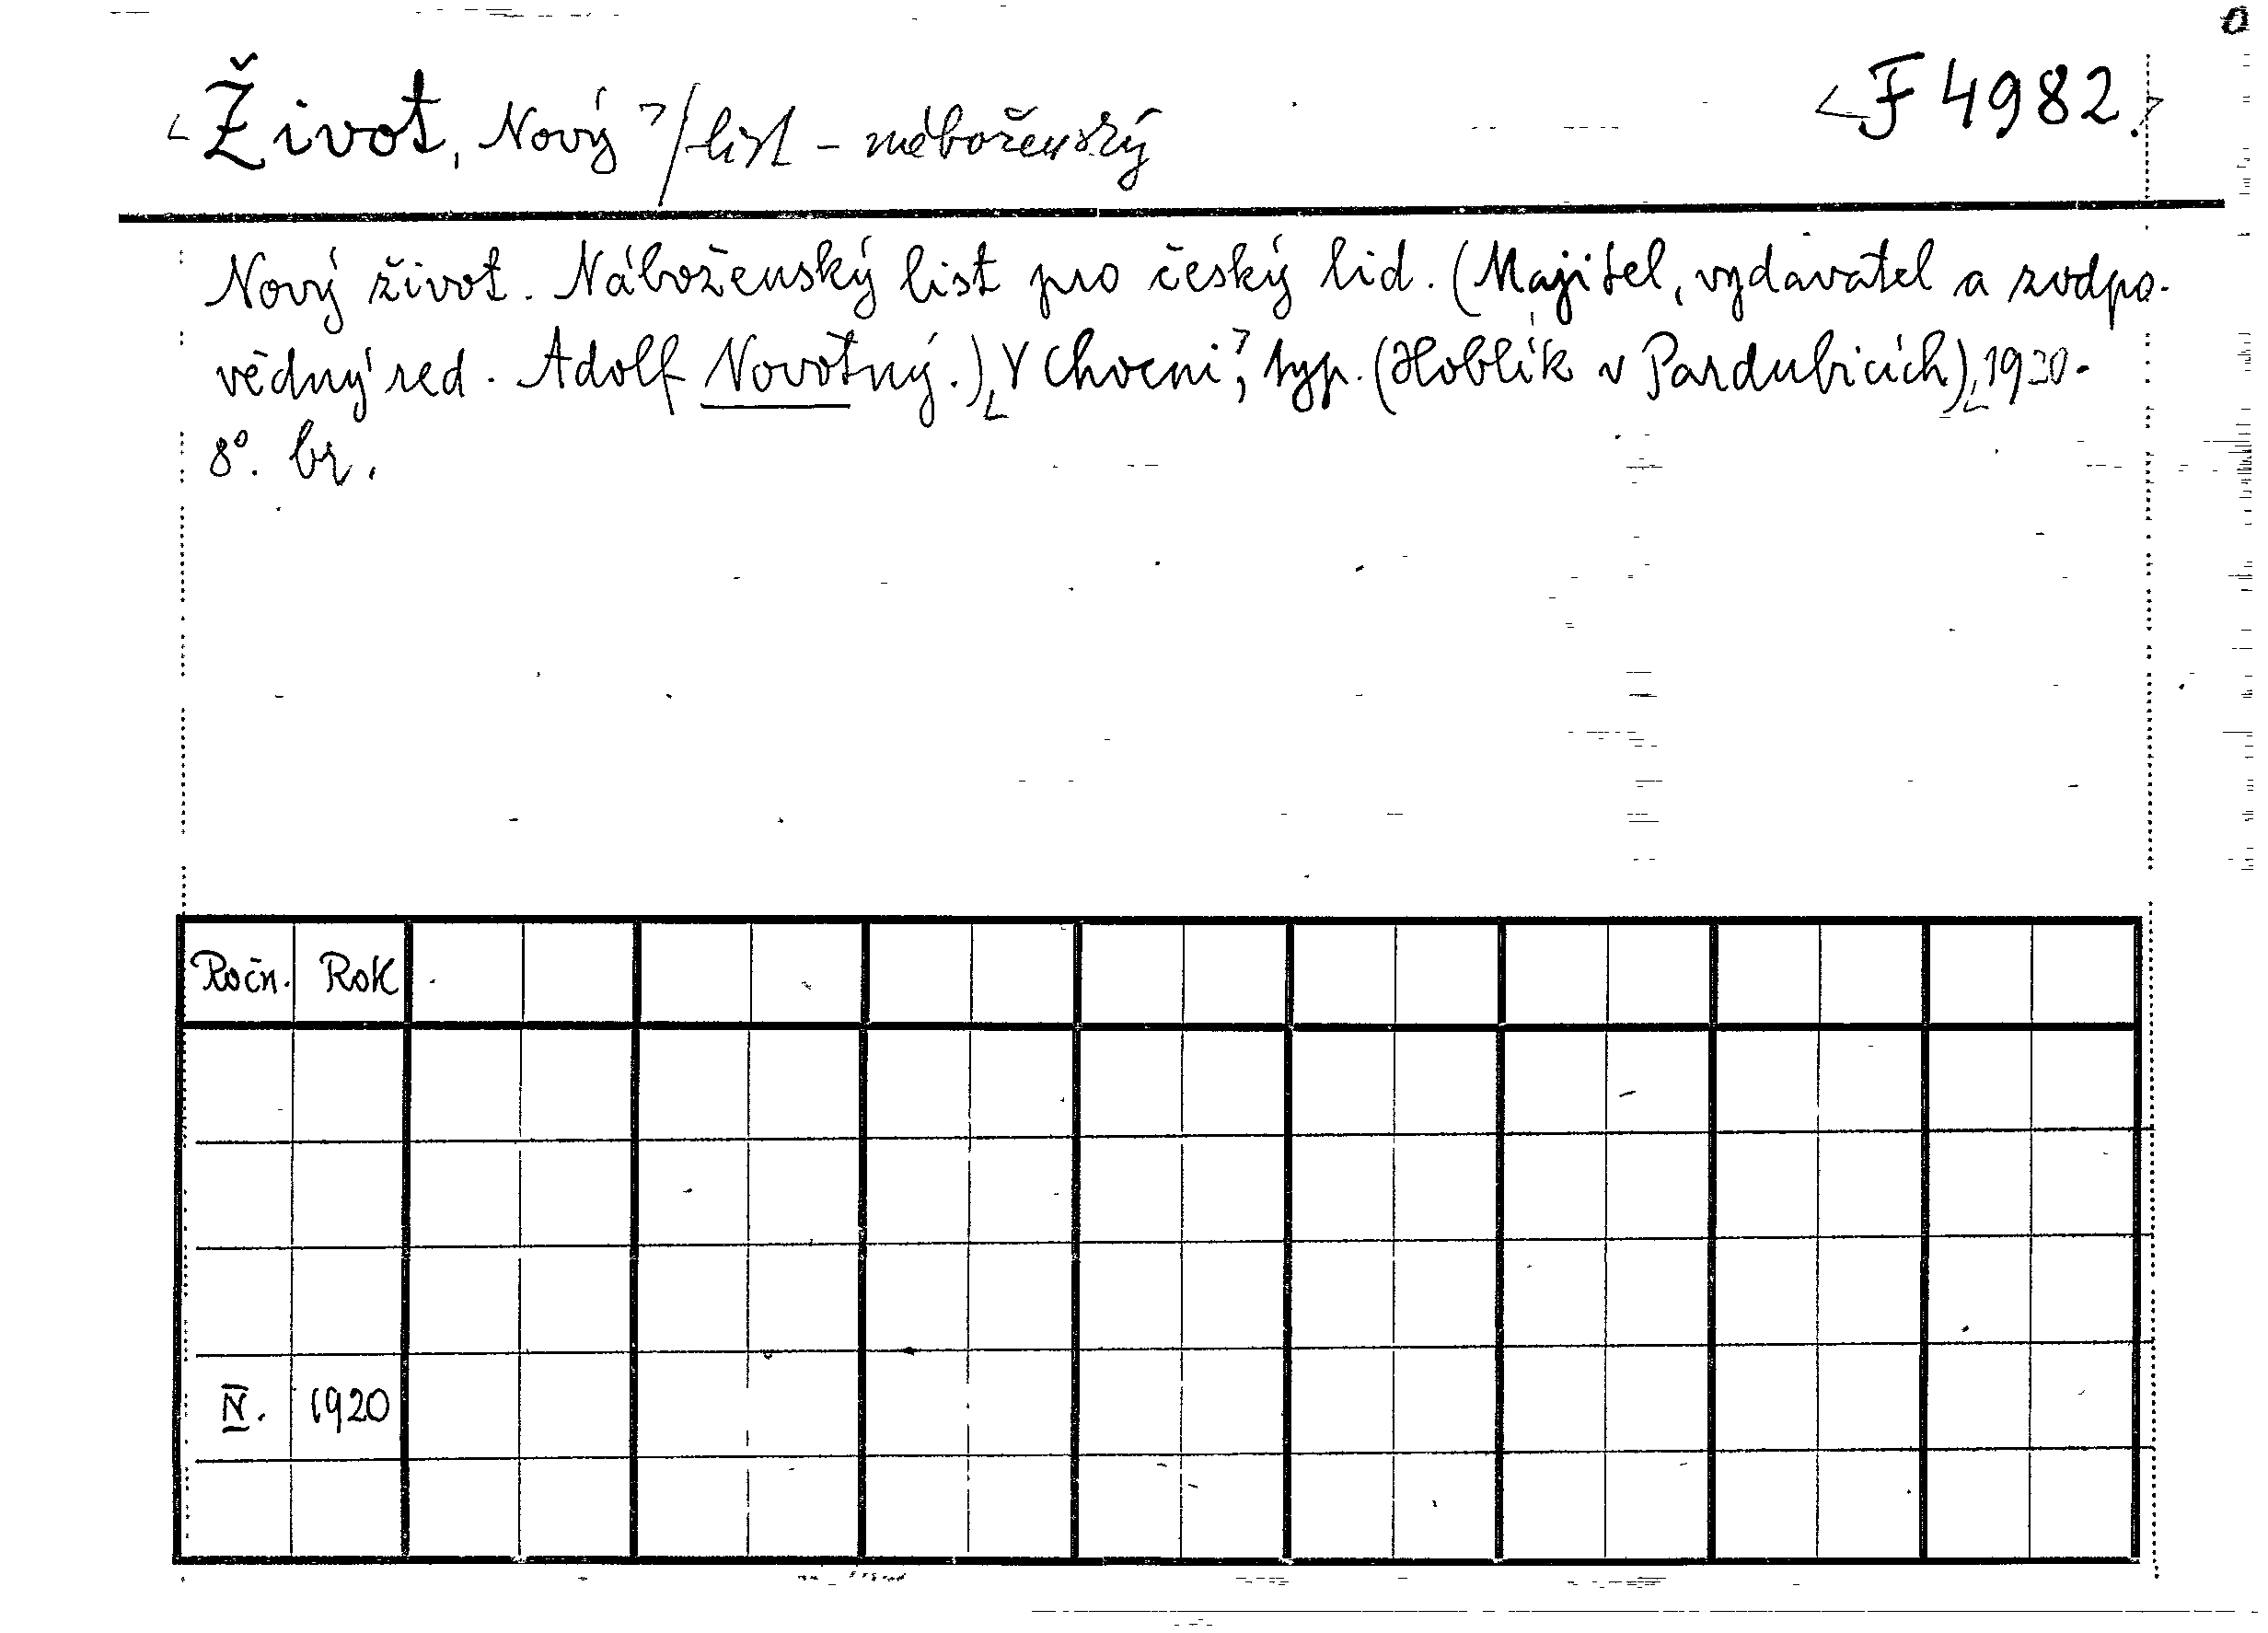 Život, Nový / list - náboženský
F 4982.
Nový život. Náboženský list pro český lid. (Majitel, vydavatel a zodpo-
vědný red. Adolf Novotný.) V Chocni, typ. (Hoblík v Pardubicích), 1920-
8°. br.
Ročn. Rok
IV. 1920